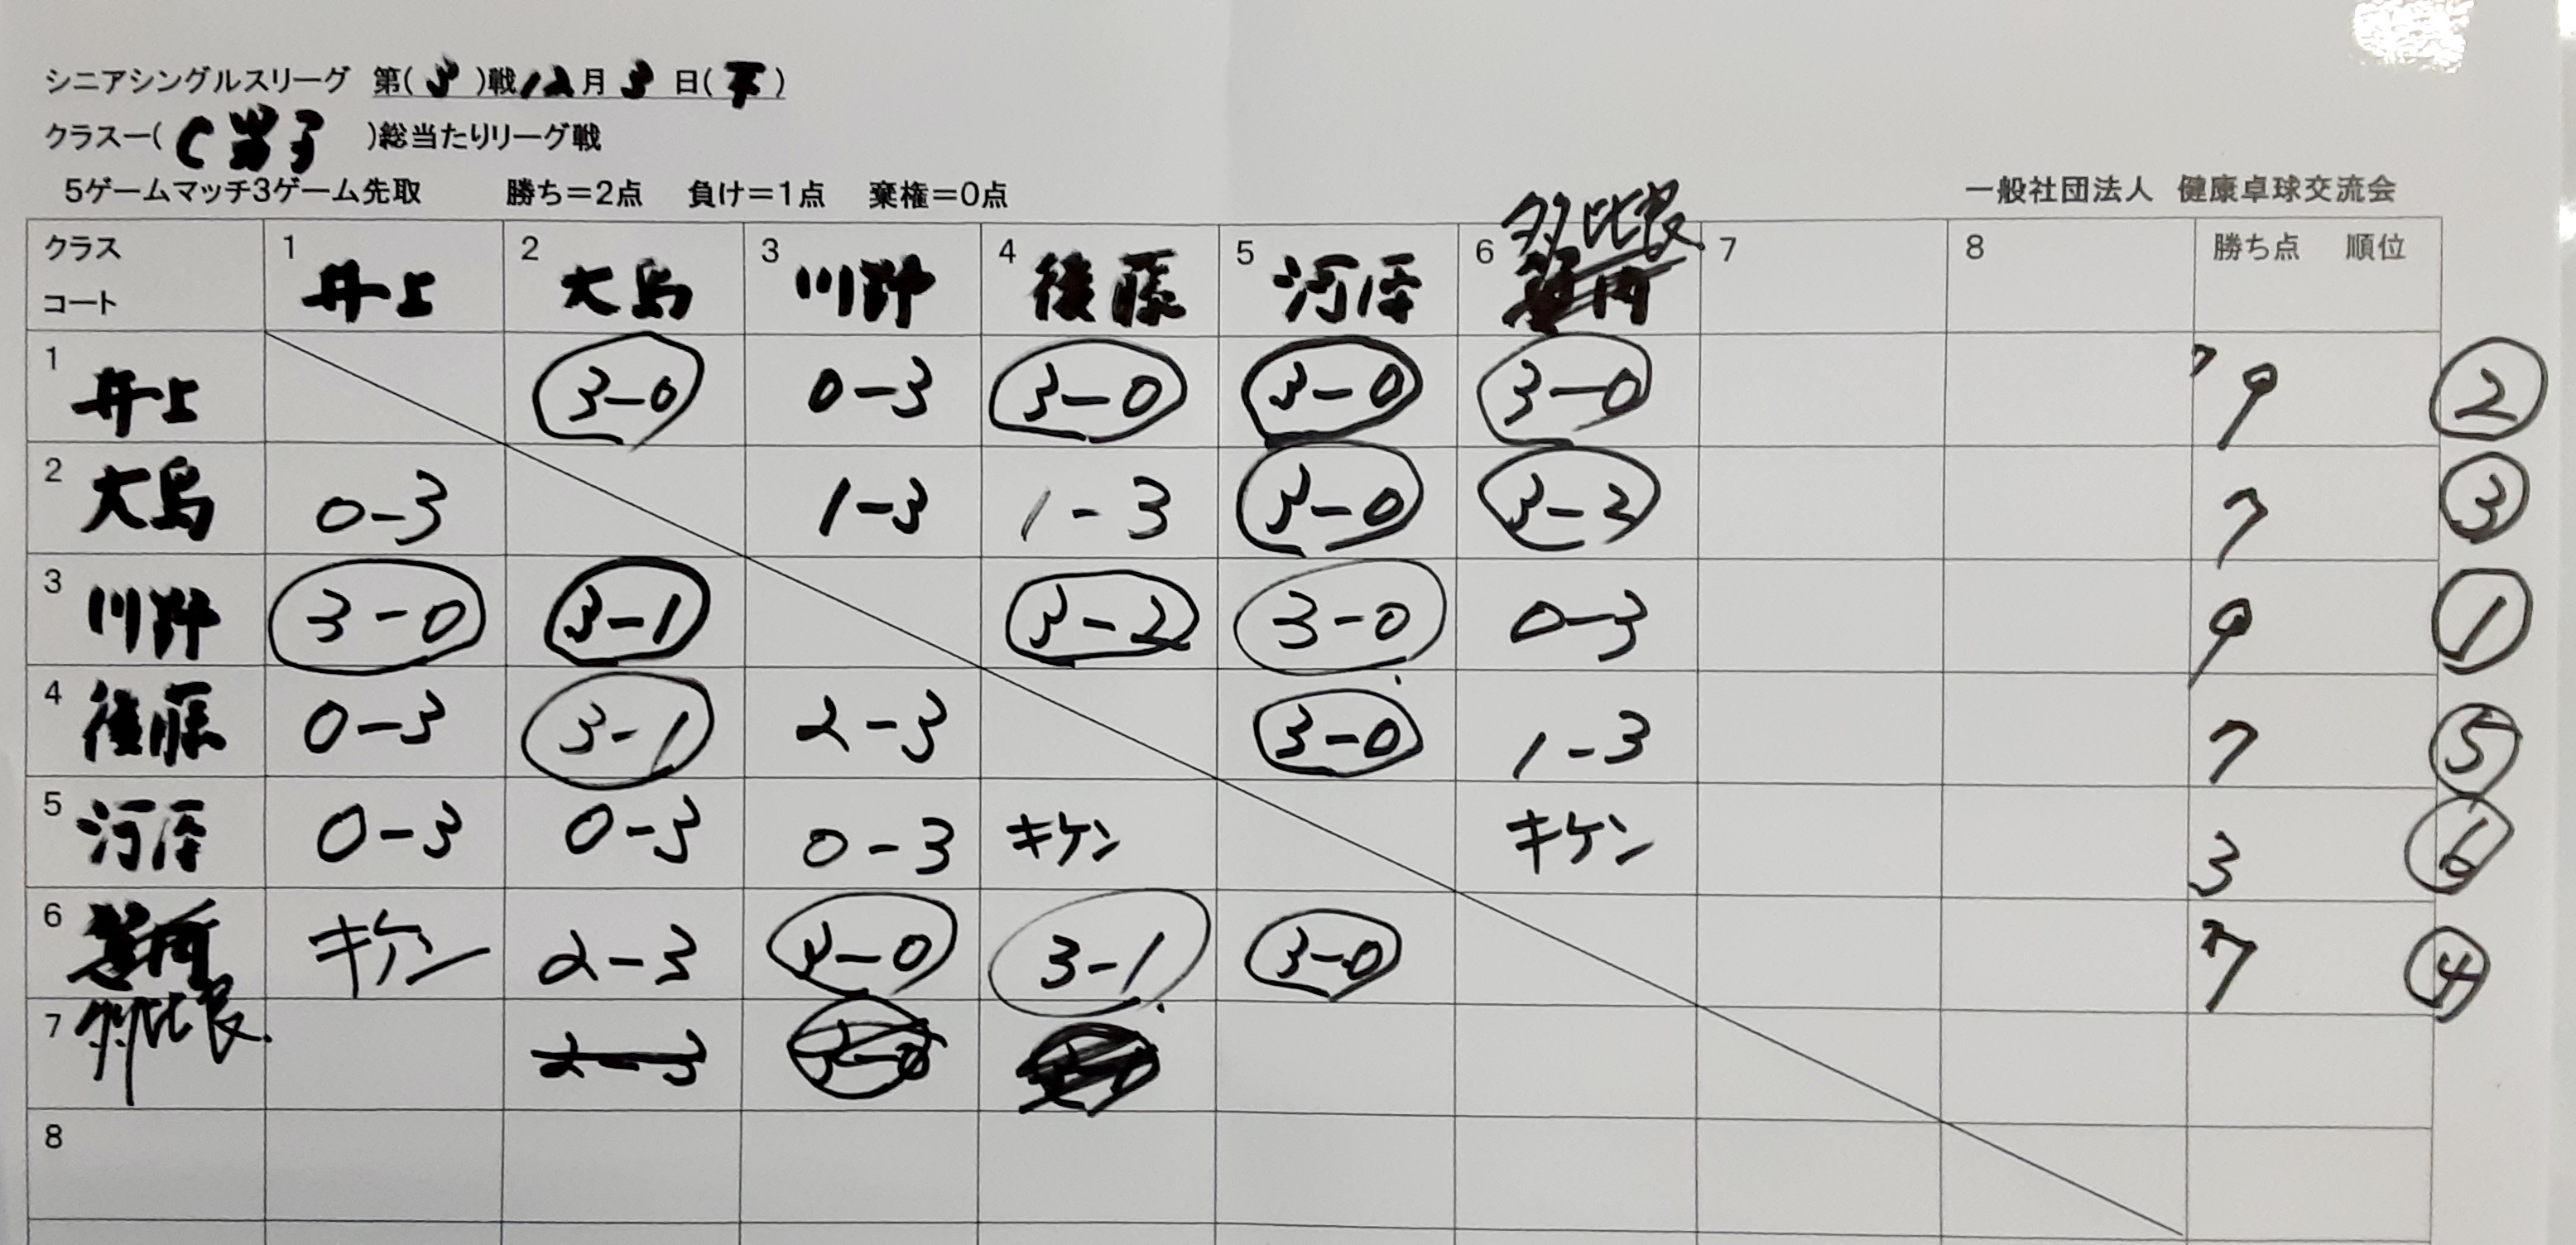 シニアシングルスリーグ 第(3)戦12月3日( )
クラスー(C男子)総当たりリーグ戦
5ゲームマッチ3ゲーム先取 勝ち=2点 負け=1点 棄権=0点 一般社団法人 健康卓球交流会
クラス コート 1 井上 2 大島 3 川野 4 後藤 5 河原 6 多比良 7 8 勝ち点 順位
1 井上 3-0 0-3 3-0 3-0 3-0 9 2
2 大島 0-3 1-3 1-3 3-0 3-2 7 3
3 川野 3-0 3-1 3-2 3-0 0-3 9 1
4 後藤 0-3 3-1 2-3 3-0 1-3 7 5
5 河原 0-3 0-3 0-3 キケン キケン 3 6
6 多比良 キケン 2-3 3-0 3-1 3-0 7 4
7 2-3 3-0
8